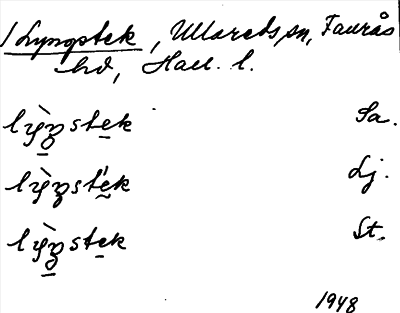 / Lyngstek, Ullareds sn, Faurås
hd, Hall. l.
lỳŋstek Sa.
lỳŋstek Lj.
lỳŋstek St.
1948